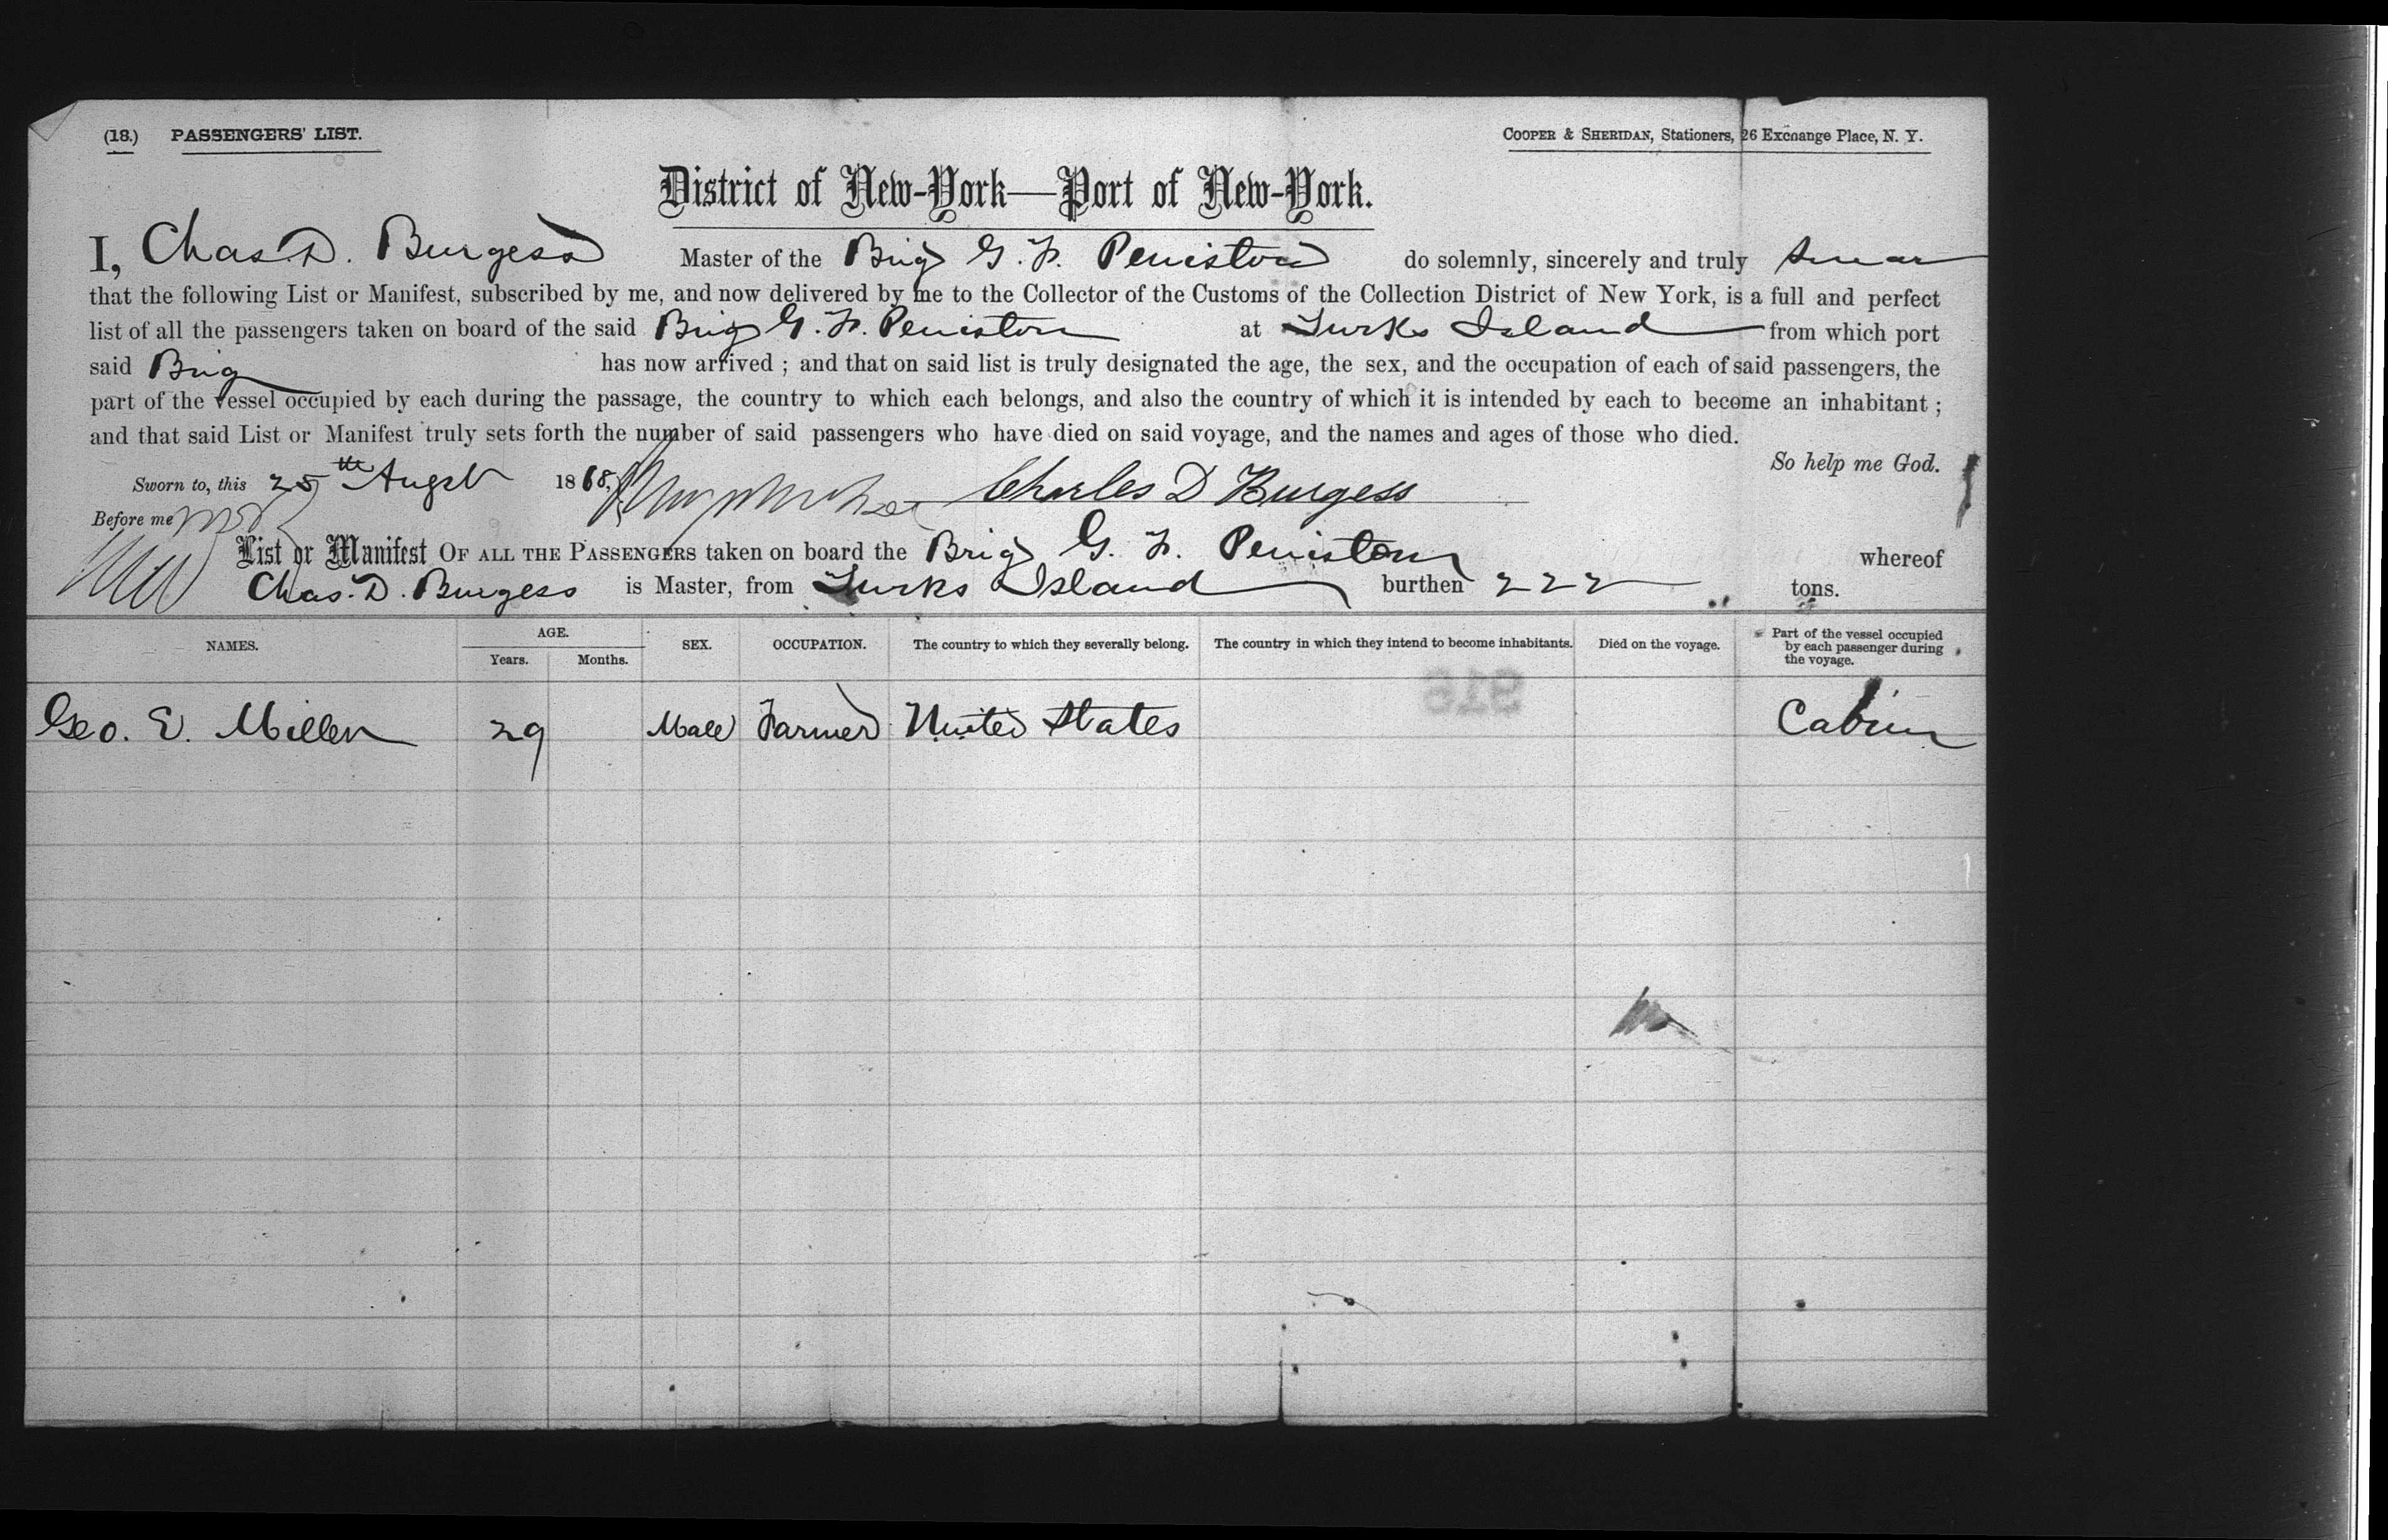 (18.) PASSENGERS' LIST.
COOPER & SHERIDAN, Stationers, 26 Exchange Place, N. Y.
District of New-York—Port of New-York.
I, Chas. D. Burgess Master of the Brig G. F. Peniston do solemnly, sincerely and truly swear
that the following List or Manifest, subscribed by me, and now delivered by me to the Collector of the Customs of the Collection District of New York, is a full and perfect
list of all the passengers taken on board of the said Brig G. F. Peniston at Turks Island from which port
said Brig has now arrived ; and that on said list is truly designated the age, the sex, and the occupation of each of said passengers, the
part of the vessel occupied by each during the passage, the country to which each belongs, and also the country of which it is intended by each to become an inhabitant ;
and that said List or Manifest truly sets forth the number of said passengers who have died on said voyage, and the names and ages of those who died.
So help me God.
Sworn to, this 25th Augst 1868, Charles D Burgess
Before me
List or Manifest OF ALL THE PASSENGERS taken on board the Brig G. F. Peniston whereof
Chas. D. Burgess is Master, from Turks Island burthen 222 tons.
NAMES. AGE. Years. Months. SEX. OCCUPATION. The country to which they severally belong. The country in which they intend to become inhabitants. Died on the voyage. Part of the vessel occupied by each passenger during the voyage.
Geo. E. Miller 29 Male Farmer United States Cabin